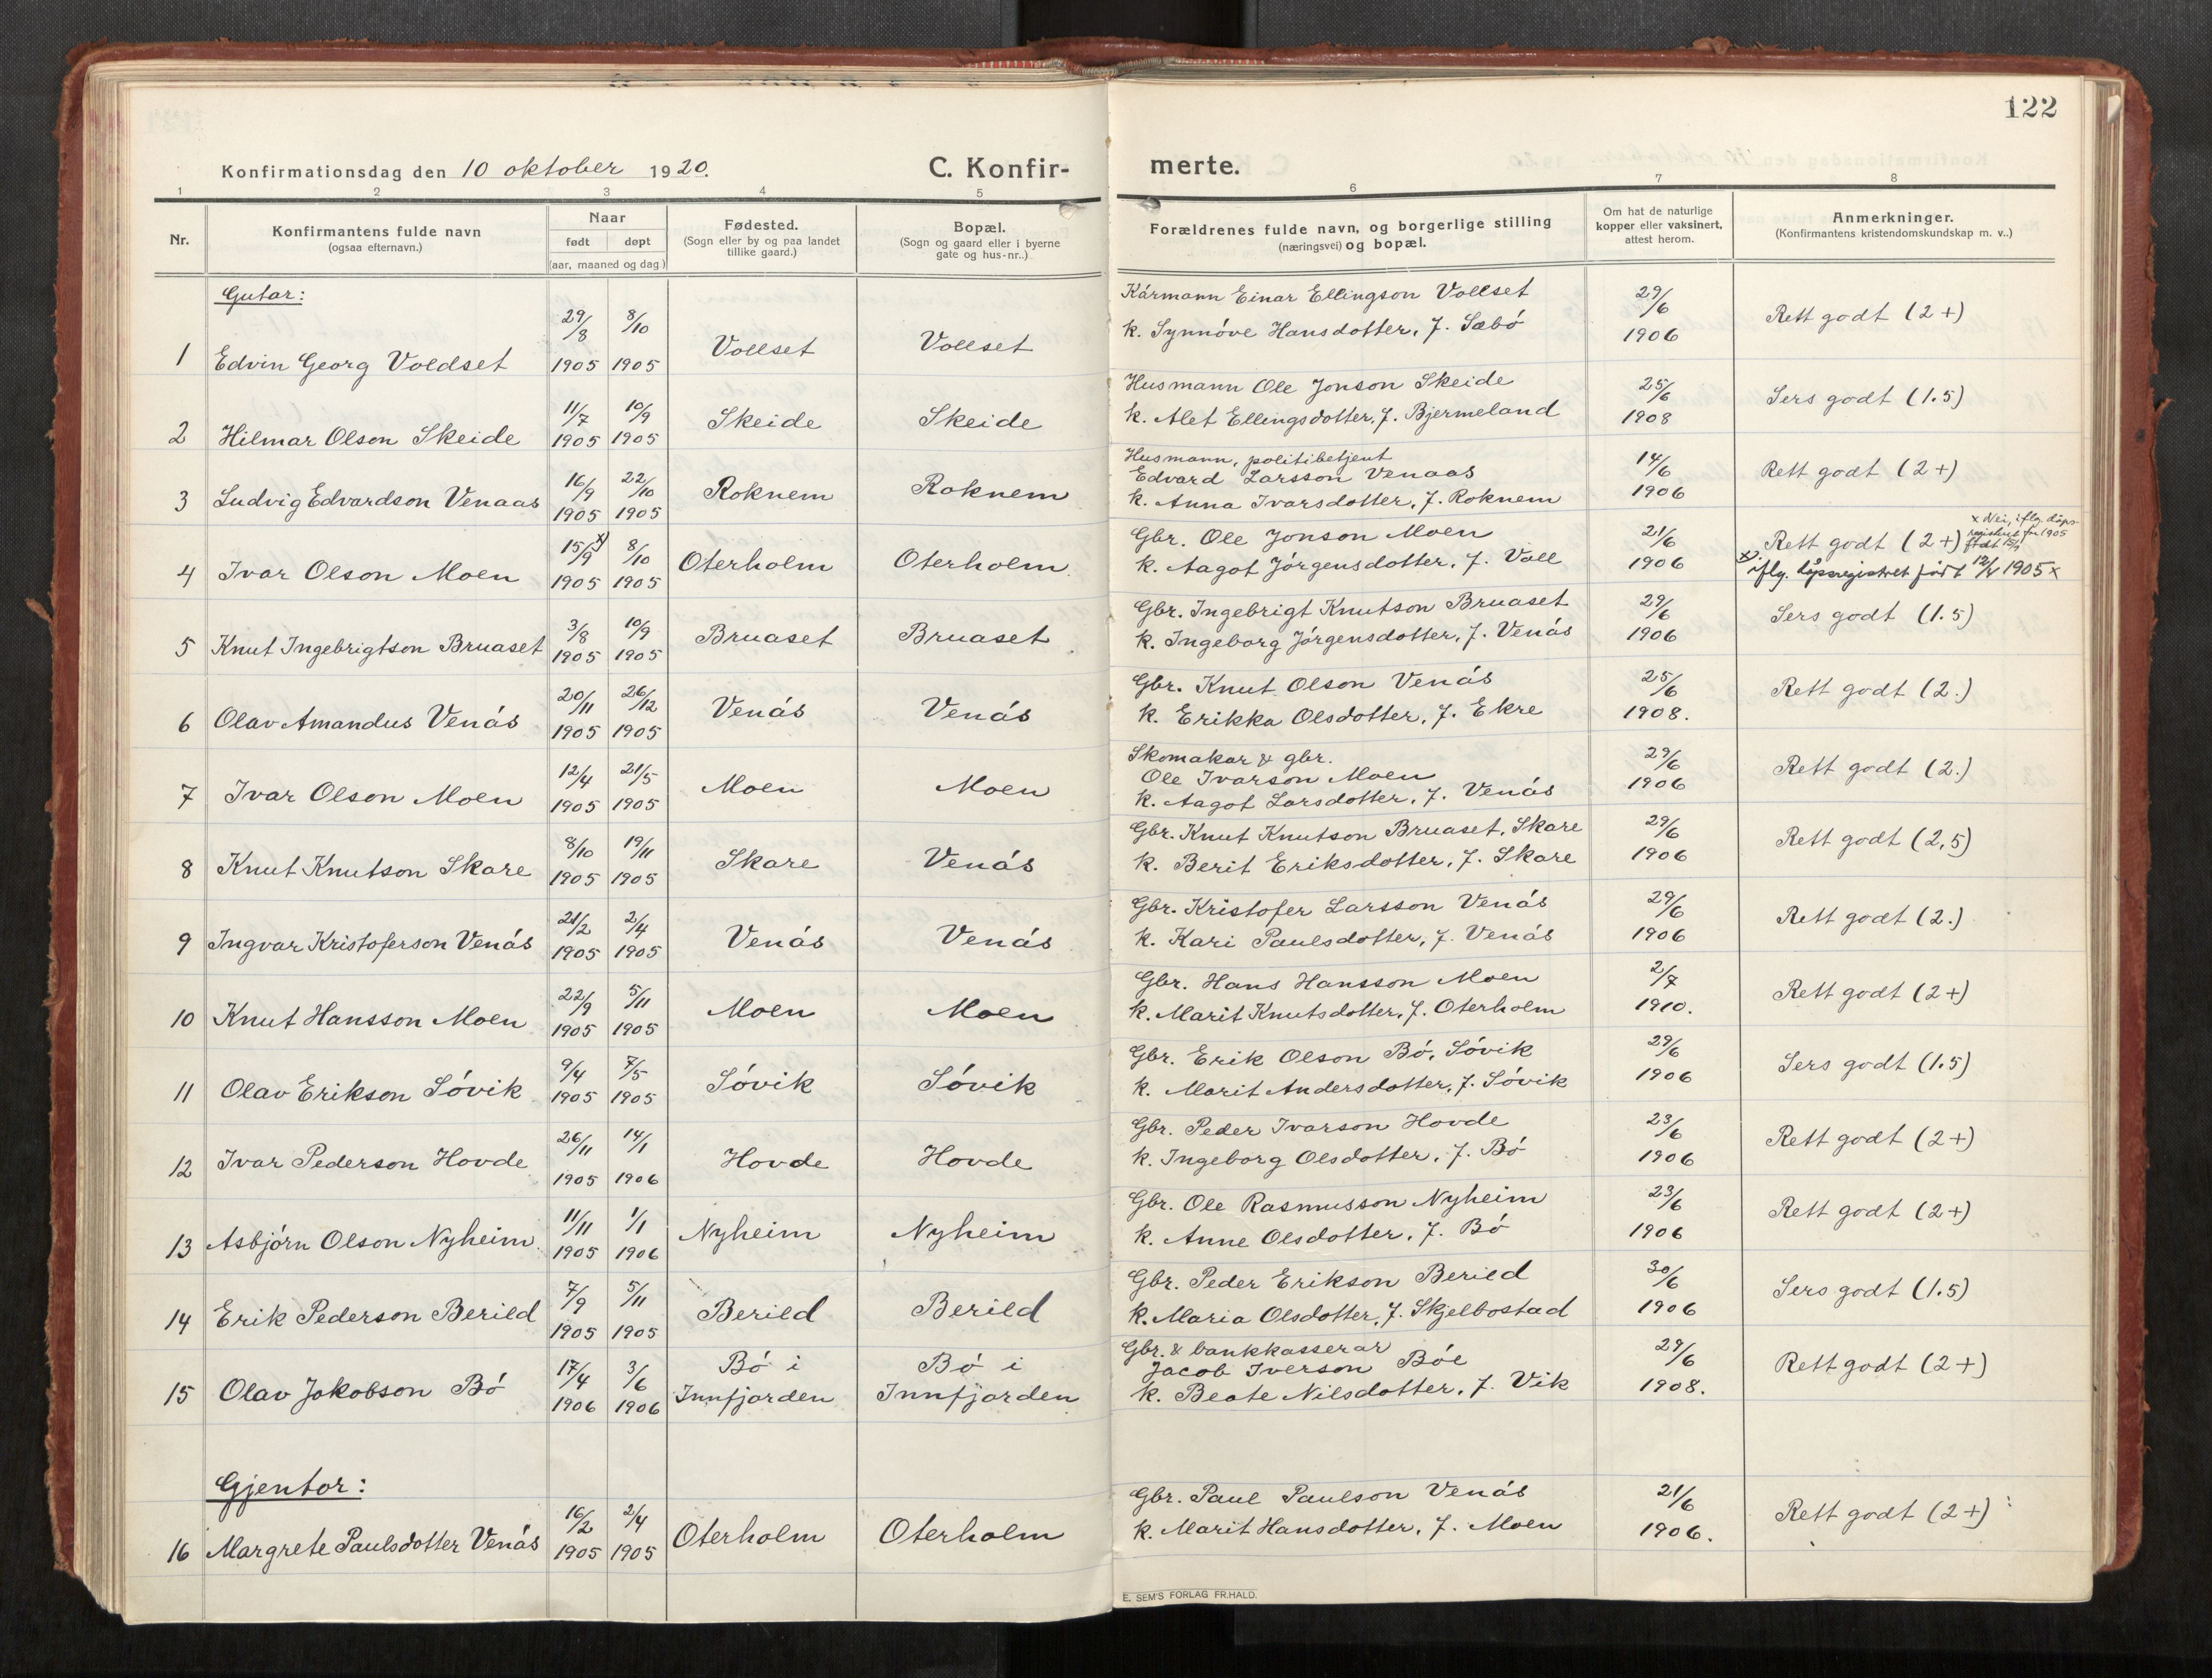 122
Konfirmationsdag den 10 oktober 1920.
C. Konfir-
merte.
1 2 3 4 5 6 7 8
Nr.
Konfirmantens fulde navn
(ogsaa efternavn.)
Naar
født døpt
(aar, maaned og dag.)
Fødested.
(Sogn eller by og paa landet
tillike gaard.)
Bopæl.
(Sogn og gaard eller i byerne
gate og hus-nr..)
Forældrenes fulde navn, og borgerlige stilling
(næringsvei) og bopæl.
Om hat de naturlige
kopper eller vaksinert,
attest herom.
Anmerkninger.
(Konfirmantens kristendomskundskap m. v..)
Gutar:
1 Edvin Georg Voldset 29/8 1905 8/10 1905 Vollset Vollset
Kármann Einar Ellingson Vollset
k. Synnóve Hansdotter, f. Sæbó
29/6 1906 Rett godt (2+)
2 Hilmar Olson Skeide 11/7 1905 10/9 1905 Skeide Skeide
Husmann Ole Jonson Skeide
k. Alet Ellingsdotter, f. Bjermeland
25/6 1908 Sers godt (1.5)
3 Ludvig Edvardson Venaas 16/9 1905 22/10 1905 Roknem Roknem
Husmann, politibetjent
Edvard Larsson Venaas
k. Anna Ivarsdotter, f. Roknem
14/6 1906 Rett godt (2+)
4 Ivar Olson Moen 15/9 x) 1905 8/10 1905 Oterholm Oterholm
Gbr. Ole Jonson Moen
k. Aagot Jórgensdotter, f. Voll
21/6 1906 Rett godt (2+)
x Nei, iflg. dåps-
registret for 1905
født 15/9
x) iflg. dåpsregistret født 12/4 1905 x
5 Knut Ingebrigtson Bruaset 3/8 1905 10/9 1905 Bruaset Bruaset
Gbr. Ingebrigt Knutson Bruaset
k. Ingeborg Jórgensdotter, f. Venás
29/6 1906 Sers godt (1.5)
6 Olav Amandus Venás 20/11 1905 26/12 1905 Venás Venás
Gbr. Knut Olson Venás
k. Erikka Olsdotter, f. Ekre
25/6 1908. Rett godt (2.)
7 Ivar Olson Moen 12/4 1905 21/5 1905 Moen Moen
Skomakar & gbr.
Ole Ivarson Moen
k. Aagot Larsdotter, f. Venás
29/6 1906 Rett godt (2.)
8 Knut Knutson Skare 8/10 1905 19/11 1905 Skare Venás
Gbr. Knut Knutson Bruaset, Skare
k. Berit Eriksdotter, f. Skare
29/6 1906 Rett godt (2,5)
9 Ingvar Kristoferson Venás 21/2 1905 2/4 1905 Venás Venás
Gbr. Kristofer Larsson Venás
k. Kari Paulsdotter, f. Venás
29/6 1906 Rett godt (2.)
10 Knut Hansson Moen 22/9 1905 5/11 1905 Moen Moen
Gbr. Hans Hansson Moen
k. Marit Knutsdotter, f. Oterholm
2/7 1910. Rett godt (2+)
11 Olav Erikson Sóvik 9/4 1905 7/5 1905 Sóvik Sóvik
Gbr. Erik Olson Bó, Sóvik
k. Marit Andersdotter, f. Sóvik
29/6 1906 Sers godt (1.5)
12 Ivar Pederson Hovde 26/11 1905 14/1 1906 Hovde Hovde
Gbr. Peder Ivarson Hovde
k. Ingeborg Olsdotter, f. Bó
23/6 1906 Rett godt (2+)
13 Asbjórn Olson Nyheim 11/11 1905 1/1 1906 Nyheim Nyheim
Gbr. Ole Rasmusson Nyheim
k. Anne Olsdotter, f. Bó
23/6 1906 Rett godt (2+)
14 Erik Pederson Berild 7/9 1905 5/11 1905 Berild Berild
Gbr. Peder Erikson Berild
k. Maria Olsdotter, f. Skjelbostad
30/6 1906 Sers godt (1.5)
15 Olav Jakobson Bó 17/4 1906 3/6 1906 Bó i Innfjorden Bó i Innfjorden
Gbr. & bankkasserar
Jacob Iverson Bóe
k. Beate Nilsdotter, f. Vik
29/6 1908. Rett godt (2+)
Gjentor:
16 Margrete Paulsdotter Venás 16/2 1905 2/4 1905 Oterholm Oterholm
Gbr. Paul Paulson Venás
k. Marit Hansdotter, f. Moen
21/6 1906. Rett godt (2+)
E. SEM'S FORLAG FR.HALD.